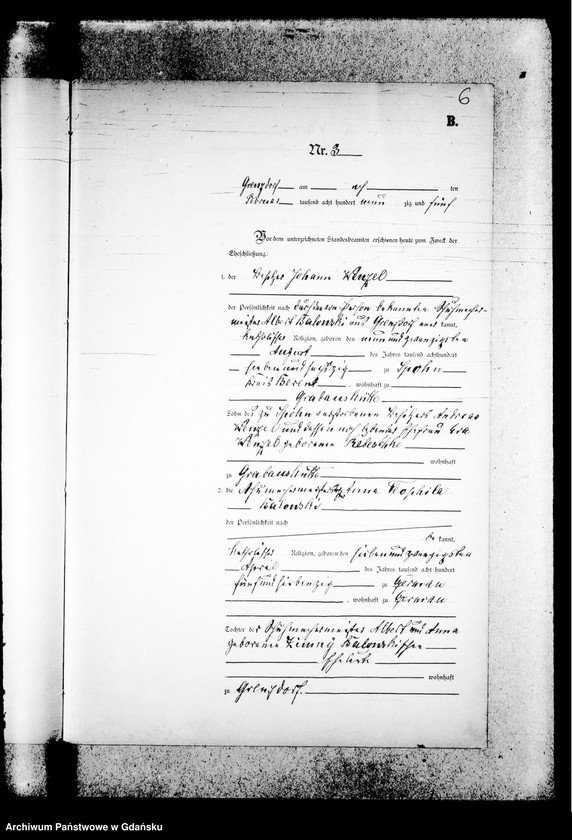 6
B.
Nr. 3
am acht ten
Februar tausend acht hundert neun zig und fünf
Vor dem unterzeichneten Standesbeamten erschienen heute zum Zweck der
Eheschließung:
1. der Besitzer Johann Wenzel
der Persönlichkeit nach durch Person bekannten Schuhmacher-
meister Albert Kalowski aus kannt,
katholischer Religion, geboren den neunundzwanzigsten
August des Jahres tausend achthundert
sieben und sechszig zu Spohn
Kreis Berent, wohnhaft zu
Grabaushütte
Sohn des zu Spohn verstorbenen Besitzers Andreas
Wenzel und dessen noch lebenden Ehefrau Eva
Wenzel geborenen
wohnhaft
zu Grabaushütte
2. die Schuhmachermeister Anna
Kalowski
der Persönlichkeit nach
be kannt,
katholischer Religion, geboren den siebenundzwanzigsten
April des Jahres tausend acht hundert
fünfundsiebenzig zu
, wohnhaft zu
Tochter der Schuhmachermeister Albert und Anna
geborenen Kalowskischen
Eheleute
wohnhaft
zu Grenzdorf.
Archiwum Państwowe w Gdańsku